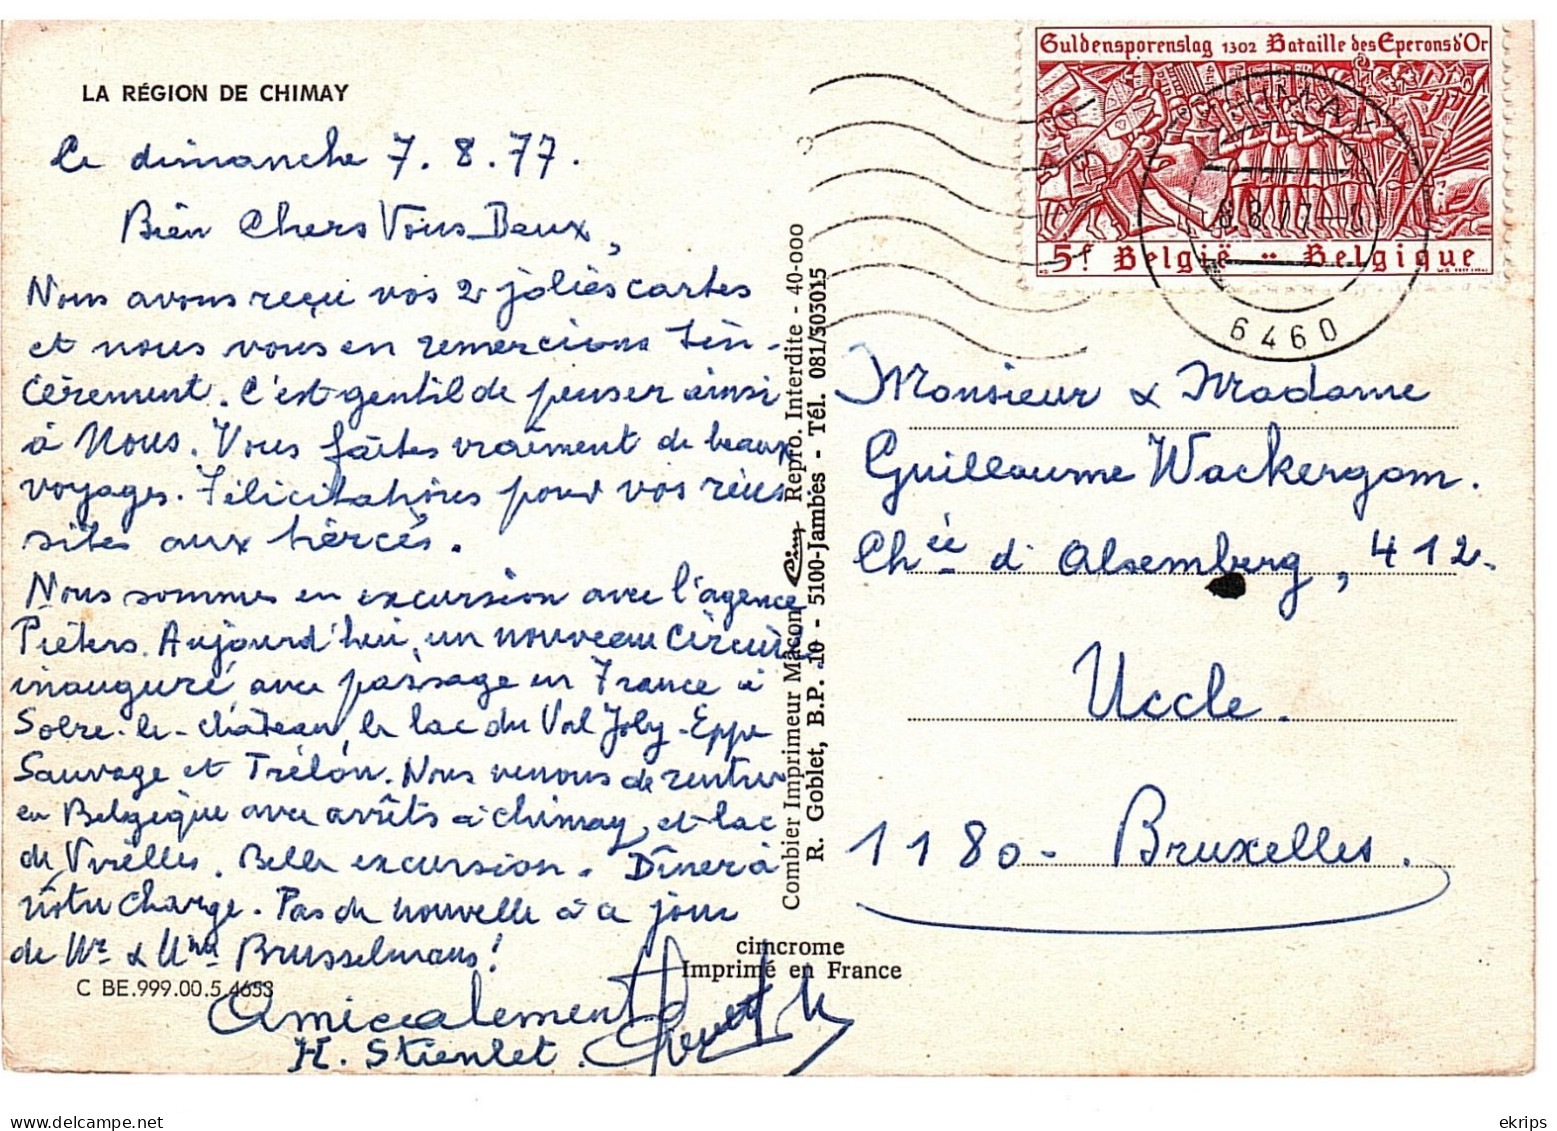 LA RÉGION DE CHIMAY
Ce dimanche 7.8.77.
Bien Chers Vous Deux,
Nous avons reçu vos 2 jolies cartes
et nous vous en remercions sin-
cèrement. C'est gentil de penser ainsi
à Nous. Vous faites vraiment de beaux
voyages. Félicitations pour vos réus
sites aux
Nous sommes en excursion avec l'agence
Piéters. Aujourd'hui, un nouveau circuit
inauguré, avec passage en France à
Solre-le-château, le lac du Val Joly-Eppe
Sauvage et Trélon. Nous venons de rentrer
en Belgique avec arrêts à Chimay, et lac
de Virelles. Belle excursion. Dîner à
notre charge. Pas de nouvelle à ce jour
de Mr & Mme Brusselmans!
C BE.999.00.5.4653
Amicalement
H. Stienlet.
Combier Imprimeur Mâcon Cim Repro. Interdite - 40-000
R. Goblet, B.P. 10 - 5100-Jambes - Tél. 081/303015
cimcrome
Imprimé en France
Guldensporenslag 1302 Bataille des Eperons d'Or
5F België .. Belgique
CHIMAY
8.8.77
6460
Monsieur & Madame
Guillaume Wackergom.
Chée d'Alsemberg, 412.
Uccle.
1180 - Bruxelles.
ekrips